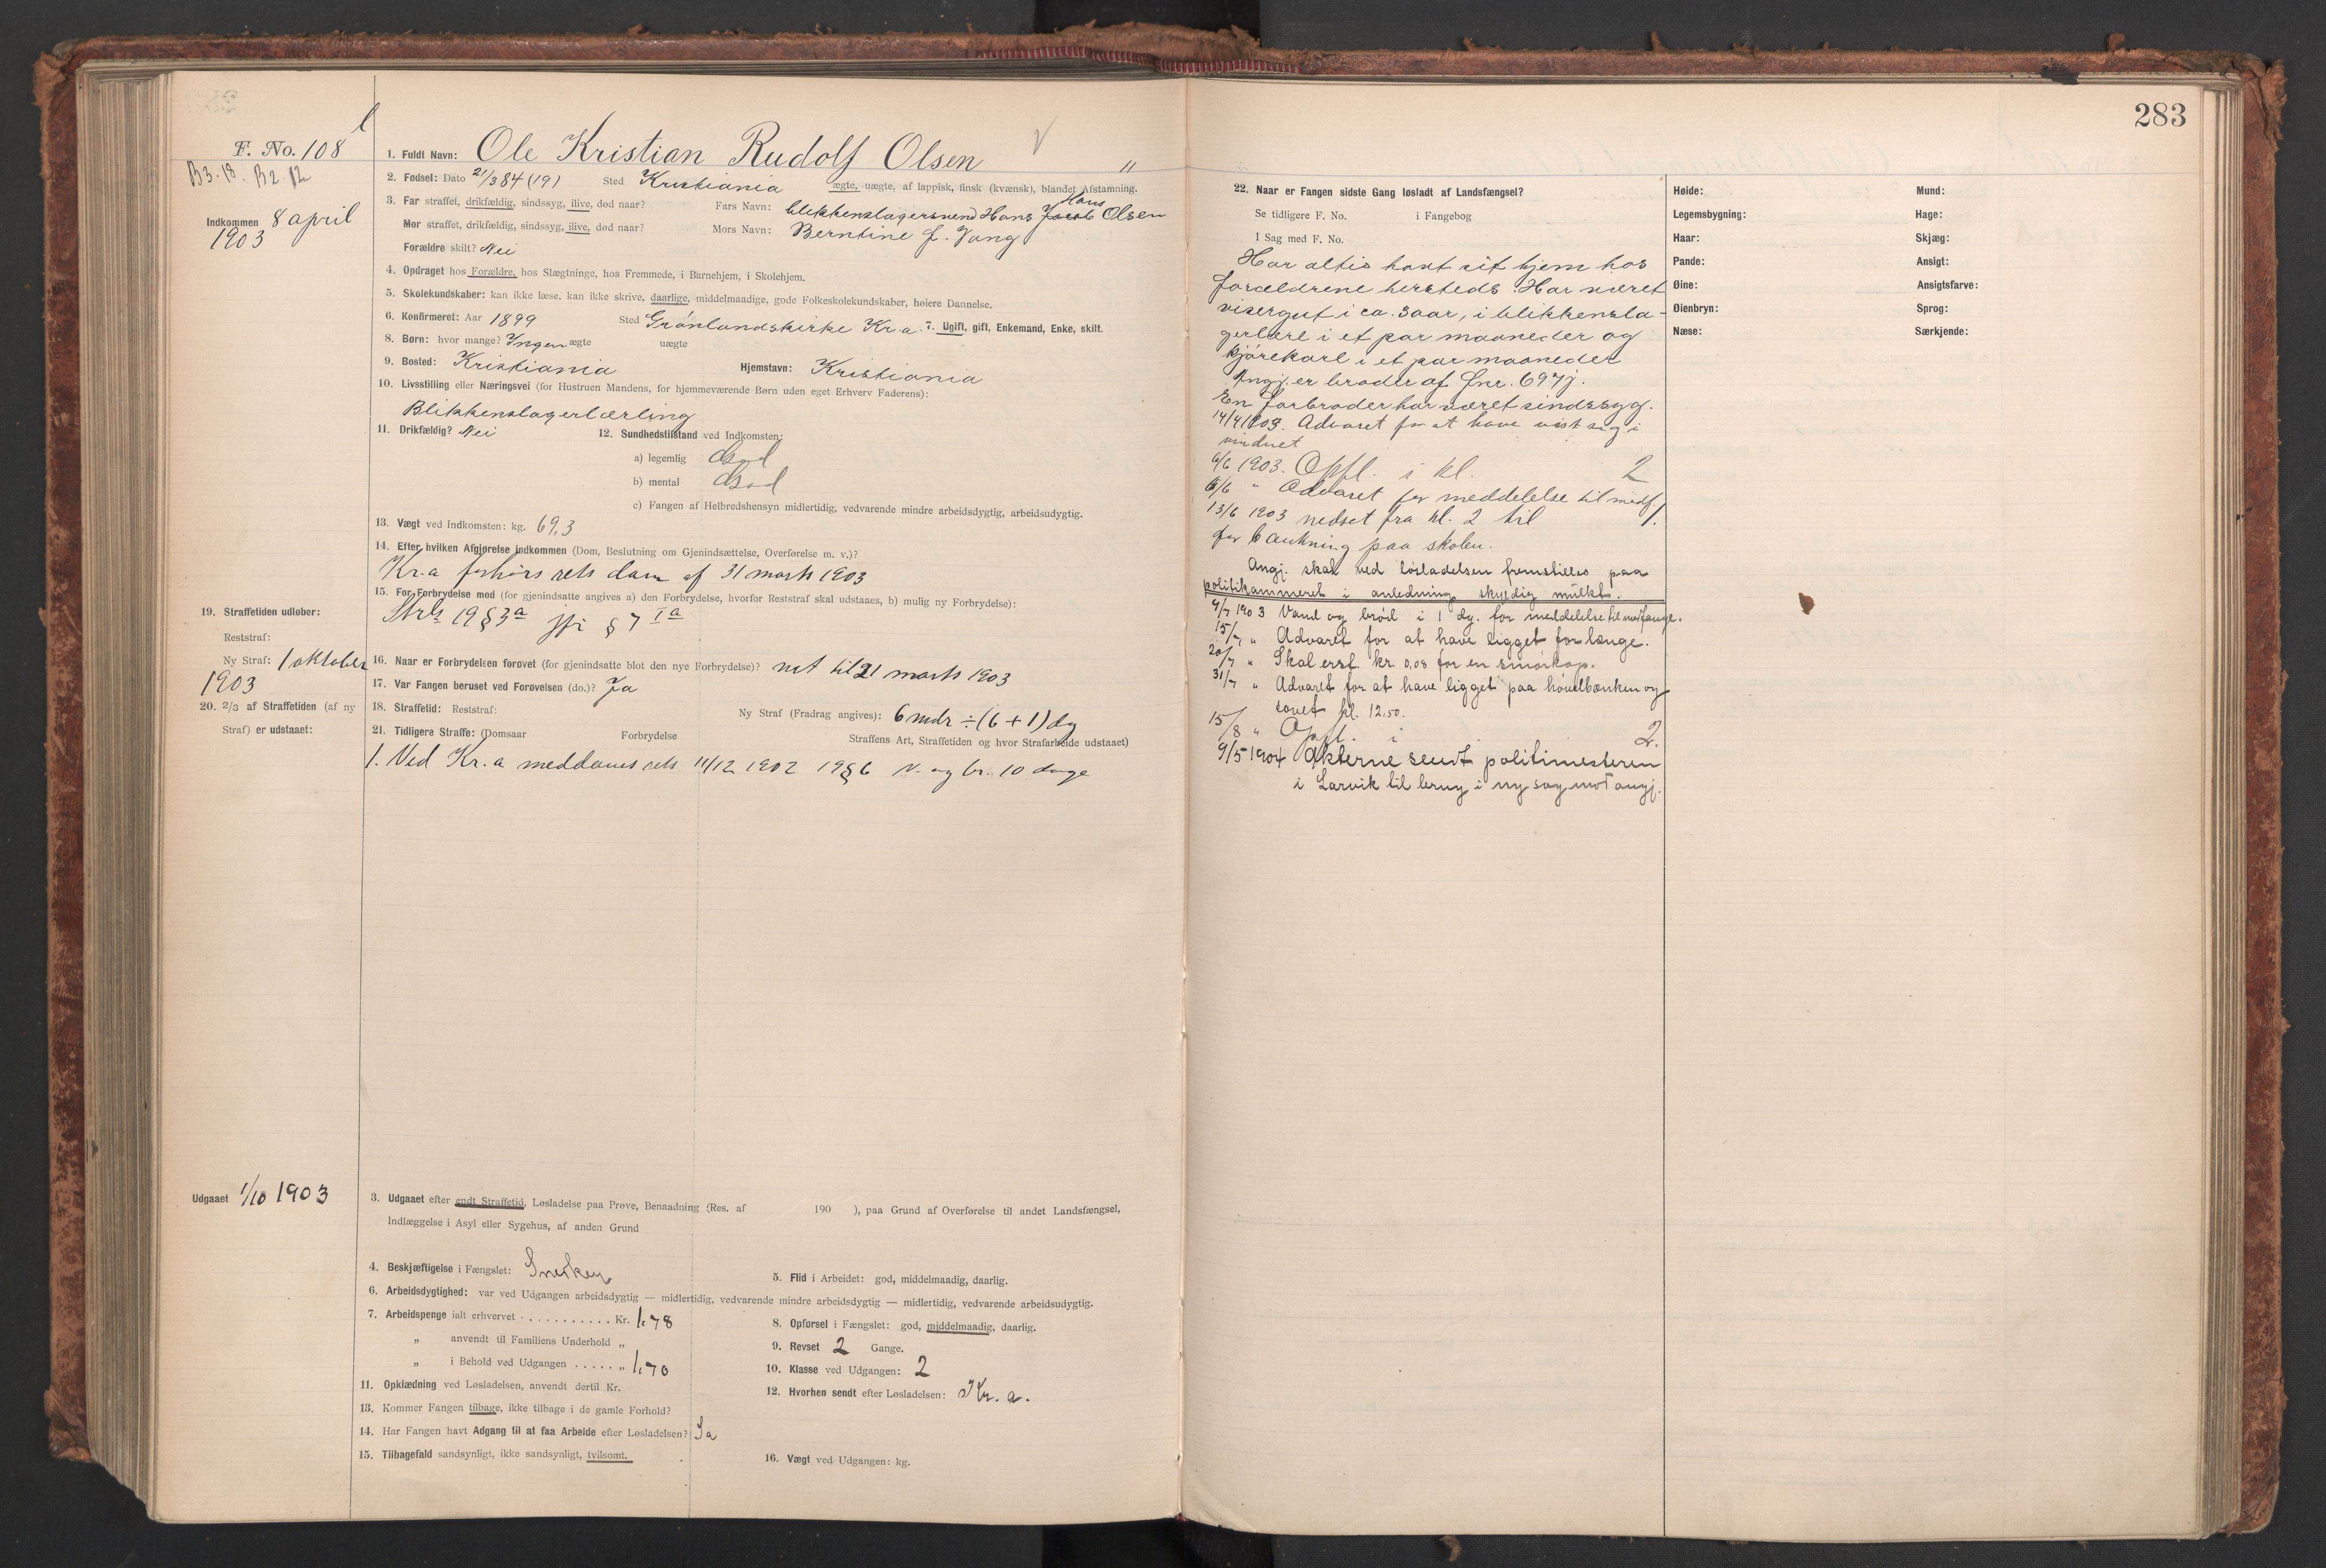 F. No. 108 l
B3.18. B2.12
Indkommen 8 april
1903
1. Fuldt Navn: Ole Kristian Rudolf Olsen
2. Fødsel: Dato 21/3 84 (19) Sted Kristiania ægte, uægte, af lappisk, finsk (kvænsk), blandet Afstamning.
3. Far straffet, drikfældig, sindssyg, ilive, død naar? Fars Navn: blikkenslagersvend Hans Jacob Hans Olsen
Mor straffet, drikfældig, sindssyg, ilive, død naar? Mors Navn: Berntine f. Vang
Forældre skilt? Nei
4. Opdraget hos Forældre, hos Slægtninge, hos Fremmede, i Barnehjem, i Skolehjem.
5. Skolekundskaber: kan ikke læse, kan ikke skrive, daarlige, middelmaadige, gode Folkeskolekundskaber, høiere Dannelse.
6. Konfirmeret: Aar 1899 Sted Grønlandskirke Kr.a. 7. Ugift, gift, Enkemand, Enke, skilt.
8. Børn: hvor mange? Ingen ægte uægte
9. Bosted: Kristiania Hjemstavn: Kristiania
10. Livsstilling eller Næringsvei (for Hustruen Mandens, for hjemmeværende Børn uden eget Erhverv Faderens):
Blikkenslagerlærling
11. Drikfældig? Nei 12. Sundhedstilstand ved Indkomsten:
a) legemlig God
b) mental God
c) Fangen af Helbredshensyn midlertidig, vedvarende mindre arbeidsdygtig, arbeidsudygtig.
13. Vægt ved Indkomsten: kg. 69,3
14. Efter hvilken Afgjørelse indkommen (Dom, Beslutning om Gjenindsættelse, Overførelse m. v.)?
Kr.a forhørsrets dom af 31 marts 1903
15. For Forbrydelse mod (for gjenindsatte angives a) den Forbrydelse, hvorfor Reststraf skal udstaaes, b) mulig ny Forbrydelse):
Strl. 19 § 3a jfr § 7 Ia
19. Straffetiden udløber:
Reststraf:
Ny Straf: 1 oktober
1903
16. Naar er Forbrydelsen forøvet (for gjenindsatte blot den nye Forbrydelse)? nat til 21 marts 1903
17. Var Fangen beruset ved Forøvelsen (do.)? Ja
20. 2/3 af Straffetiden (af ny
Straf) er udstaaet:
18. Straffetid: Reststraf: Ny Straf (Fradrag angives): 6 mdr ÷ (6 + 1) dg
21. Tidligere Straffe: (Domsaar Forbrydelse Straffens Art, Straffetiden og hvor Strafarbeide udstaaet)
1. Ved Kr.a meddomsrets 11/12 1902 19 § 6 v. og br. 10 dage
Udgaaet 1/10 1903
3. Udgaaet efter endt Straffetid, Løsladelse paa Prøve, Benaadning (Res. af 190 ), paa Grund af Overførelse til andet Landsfængsel,
Indlæggelse i Asyl eller Sygehus, af anden Grund
4. Beskjæftigelse i Fængslet: Snekker 5. Flid i Arbeidet: god, middelmaadig, daarlig.
6. Arbeidsdygtighed: var ved Udgangen arbeidsdygtig — midlertidig, vedvarende mindre arbeidsdygtig — midlertidig, vedvarende arbeidsudygtig.
7. Arbeidspenge ialt erhvervet . . . . . . . . . . . Kr. 1.78 8. Opførsel i Fængslet: god, middelmaadig, daarlig.
„ anvendt til Familiens Underhold „ 9. Revset 2 Gange.
„ i Behold ved Udgangen . . . . . „ 1.70 10. Klasse ved Udgangen: 2
11. Opklædning ved Løsladelsen, anvendt dertil Kr. 12. Hvorhen sendt efter Løsladelsen: Kr. a.
13. Kommer Fangen tilbage, ikke tilbage i de gamle Forhold?
14. Har Fangen havt Adgang til at faa Arbeide efter Løsladelsen? Ja
15. Tilbagefald sandsynligt, ikke sandsynligt, tvilsomt. 16. Vægt ved Udgangen: kg.
283
22. Naar er Fangen sidste Gang løsladt af Landsfængsel?
Se tidligere F. No. i Fangebog
I Sag med F. No.
Har altid havt sit hjem hos
forældrene hersteds. Har været
visergut i ca. 3 aar, i blikkensla-
gerlære i et par maaneder og
kjørekarl i et par maaneder
Angj. er broder af fnr. 697 j.
En farbroder har været sindssyg.
14/4 1903. Advaret for at have vist sig i
vinduet
6/6 1903. Opfl. i kl. 2
6/6 " Advaret for meddelelse til medf.
13/6 1903 nedset fra kl. 2 til 1.
for bankning paa skolen.
Angj. skal ved løsladelsen fremstilles paa
politikammeret i anledning skyldig mulkt.
4/7 1903 Vand og brød i 1 dg. for meddelelse til medfange.
15/7 " Advaret for at have ligget for længe.
20/7 " Skal erst. kr. 0,08 for en smørkop.
31/7 " Advaret for at have ligget paa høvelbænken og
sovet kl. 12.50.
15/8 " Opfl. i 2.
9/5 1904 Akterne sendt politimesteren
i Larvik til brug i ny sag mod angj.
Høide: Mund:
Legemsbygning: Hage:
Haar: Skjæg:
Pande: Ansigt:
Øine: Ansigtsfarve:
Øienbryn: Sprog:
Næse: Særkjende: